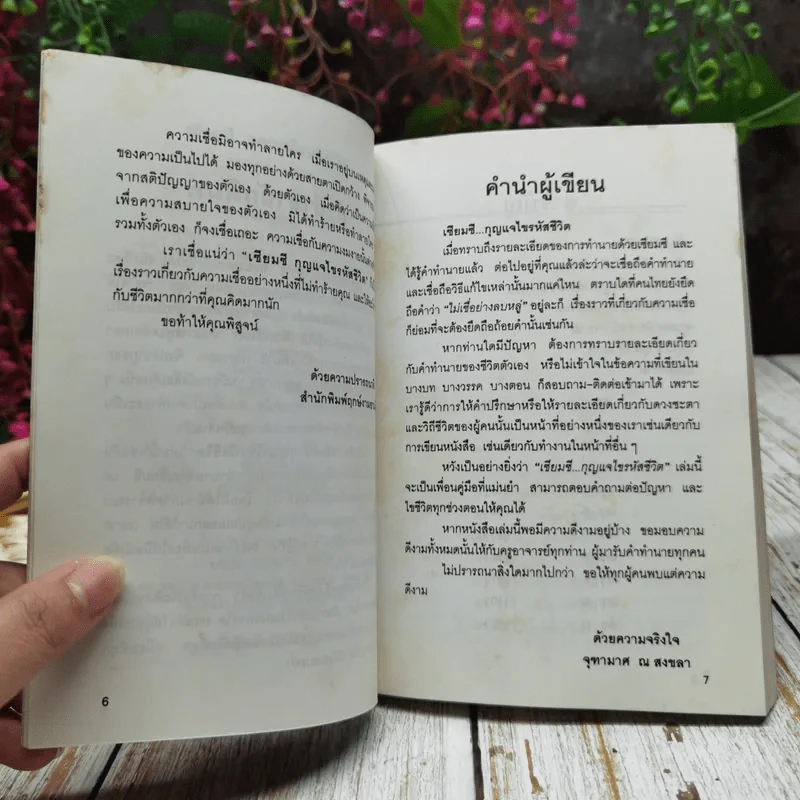 ความเชื่อมิอาจทำลายใคร เมื่อเราอยู่บน
ของความเป็นไปได้ มองทุกอย่างด้วยสายตาเปิดกว้าง
จากสติปัญญาของตัวเอง ด้วยตัวเอง เมื่อคิดว่าเป็น
เพื่อความสบายใจของตัวเอง มิได้ทำร้ายหรือทำลายใคร
รวมทั้งตัวเอง ก็จงเชื่อเถอะ ความเชื่อกับความงมงายนั้น
เราเชื่อแน่ว่า “เซียมซี กุญแจไขรหัสชีวิต”
เรื่องราวเกี่ยวกับความเชื่ออย่างหนึ่งที่ไม่ทำร้ายคุณ
กับชีวิตมากกว่าที่คุณคิดมากนัก
ขอท้าให้คุณพิสูจน์
ด้วยความปรารถนา
สำนักพิมพ์ฤกษ์งามยาม
6
คำนำผู้เขียน
เซียมซี...กุญแจไขรหัสชีวิต
เมื่อทราบถึงรายละเอียดของการทำนายด้วยเซียมซี และ
ได้รู้คำทำนายแล้ว ต่อไปอยู่ที่คุณแล้วล่ะว่าจะเชื่อถือคำทำนาย
และเชื่อถือวิธีแก้ไขเหล่านั้นมากแค่ไหน ตราบใดที่คนไทยยังยึด
ถือคำว่า “ไม่เชื่ออย่าลบหลู่” อยู่ละก็ เรื่องราวที่เกี่ยวกับความเชื่อ
ก็ย่อมที่จะต้องยึดถือถ้อยคำนั้นเช่นกัน
หากท่านใดมีปัญหา ต้องการทราบรายละเอียดเกี่ยว
กับคำทำนายของชีวิตตัวเอง หรือไม่เข้าใจในข้อความที่เขียนใน
บางบท บางวรรค บางตอน ก็สอบถาม-ติดต่อเข้ามาได้ เพราะ
เรารู้ดีว่าการให้คำปรึกษาหรือให้รายละเอียดเกี่ยวกับดวงชะตา
และวิถีชีวิตของผู้คนนั้นเป็นหน้าที่อย่างหนึ่งของเราเช่นเดียวกับ
การเขียนหนังสือ เช่นเดียวกับทำงานในหน้าที่อื่น ๆ
หวังเป็นอย่างยิ่งว่า “เซียมซี...กุญแจไขรหัสชีวิต” เล่มนี้
จะเป็นเพื่อนคู่มือที่แม่นยำ สามารถตอบคำถามต่อปัญหา และ
ไขชีวิตทุกช่วงตอนให้คุณได้
หากหนังสือเล่มนี้พอมีความดีงามอยู่บ้าง ขอมอบความ
ดีงามทั้งหมดนั้นให้กับครูอาจารย์ทุกท่าน ผู้มารับคำทำนายทุกคน
ไม่ปรารถนาสิ่งใดมากไปกว่า ขอให้ทุกผู้คนพบแต่ความ
ดีงาม
ด้วยความจริงใจ
จุฑามาศ ณ สงขลา
7